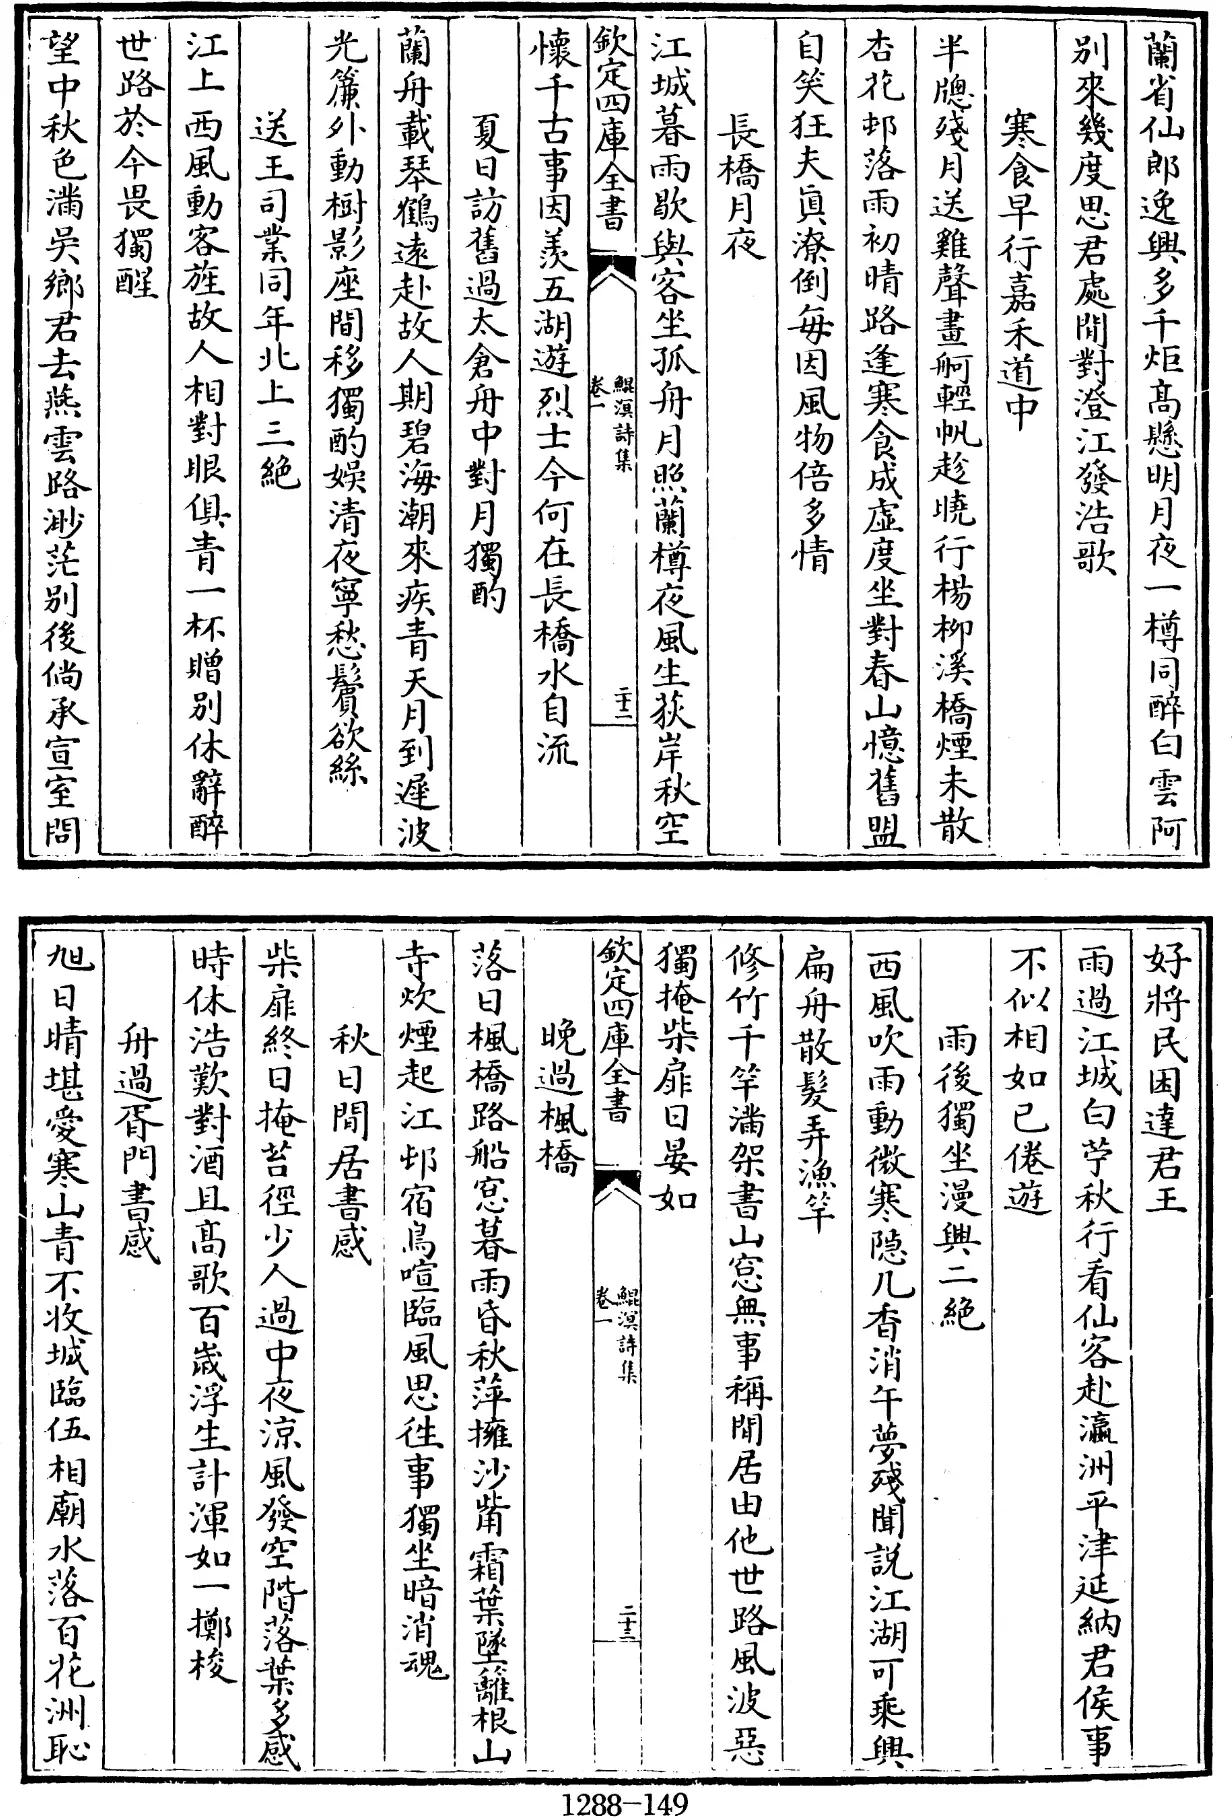 蘭省仙郎逸興多千炬髙懸明月夜一樽同醉白雲阿
别來幾度思君處閒對澄江發浩歌
寒食早行嘉禾道中
半牎殘月送雞聲畫舸輕帆趁曉行楊柳溪橋煙未散
杏花邨落雨初晴路逢寒食成虚度坐對春山憶舊盟
自笑狂夫真潦倒每因風物倍多情
長橋月夜
江城暮雨歇與客坐孤舟月照蘭樽夜風生荻岸秋空
欽定四庫全書
鯤溟詩集
卷一
二十二
懷千古事因羨五湖遊烈士今何在長橋水自流
夏日訪舊過太倉舟中對月獨酌
蘭舟載琴鶴遠赴故人期碧海潮來疾青天月到遲波
光簾外動樹影座間移獨酌娱清夜寧愁鬢欲絲
送王司業同年北上三絶
江上西風動客旌故人相對眼俱青一杯贈别休辭醉
世路於今畏獨醒
望中秋色滿吳鄉君去燕雲路渺茫别後倘承宣室問
好將民困達君王
雨過江城白苧秋行看仙客赴瀛洲平津延納君侯事
不似相如已倦遊
雨後獨坐漫興二絶
西風吹雨動微寒隠几香消午夢殘聞説江湖可乘興
扁舟散髪弄漁竿
修竹千竿滿架書山窓無事稱閒居由他世路風波惡
獨掩柴扉日晏如
欽定四庫全書
鯤溟詩集
卷一
二十三
晚過楓橋
落日楓橋路船窓暮雨昏秋萍擁沙觜霜葉墜籬根山
寺炊煙起江邨宿鳥喧臨風思徃事獨坐暗消魂
秋日閒居書感
柴扉終日掩苔徑少人過中夜涼風發空階落葉多感
時休浩歎對酒且髙歌百歳浮生計渾如一擲梭
舟過胥門書感
旭日晴堪愛寒山青不收城臨伍相廟水落百花洲恥
1288-149